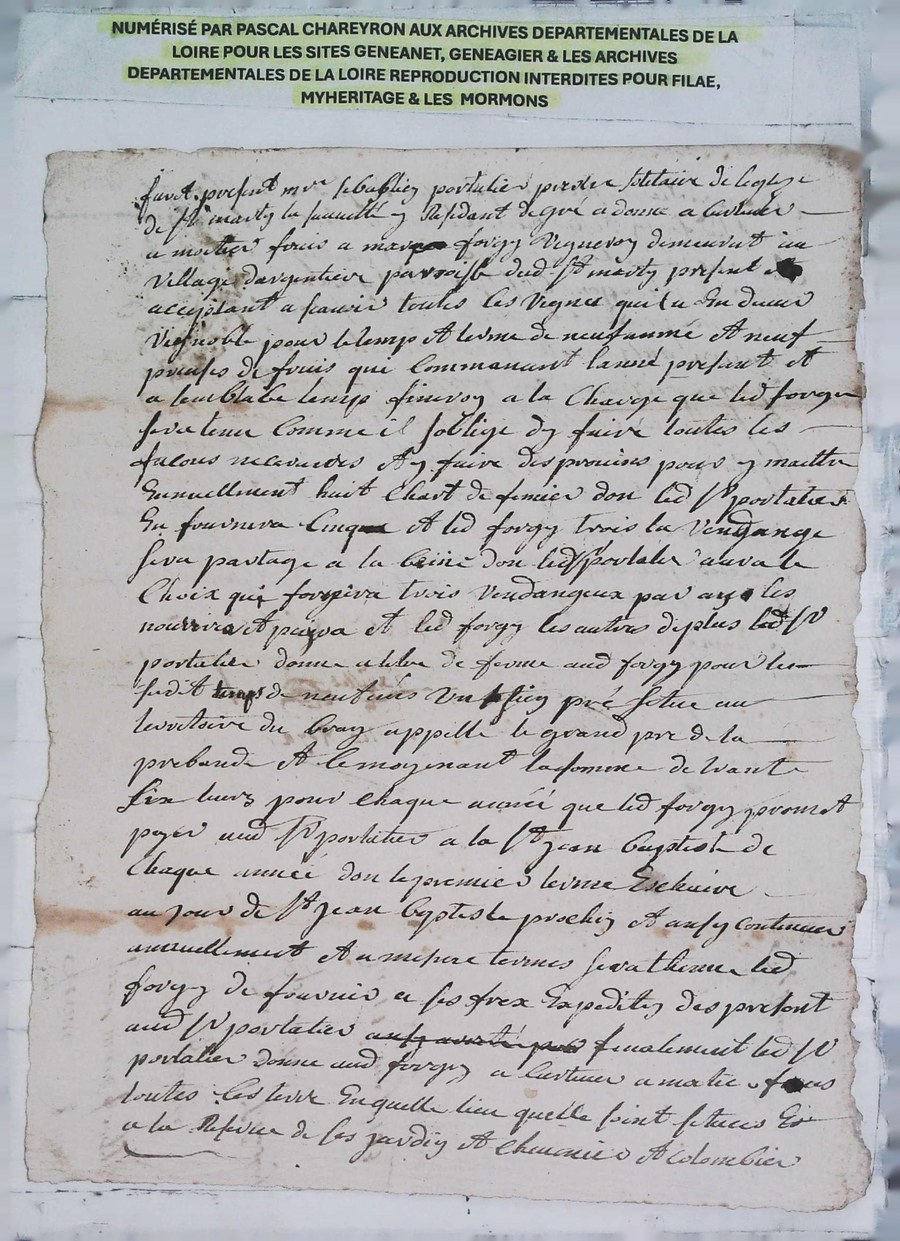 NUMÉRISÉ PAR PASCAL CHAREYRON AUX ARCHIVES DEPARTEMENTALES DE LA
LOIRE POUR LES SITES GENEANET, GENEAGIER & LES ARCHIVES
DEPARTEMENTALES DE LA LOIRE REPRODUCTION INTERDITES POUR FILAE,
MYHERITAGE & LES MORMONS
furet present mre sebastien portalier pretre de leglize
de St marty la y Residant de gré a donné a
a moitier fruis a forgy Vigneroy demeurat au
Village dargentiere parroisse dud St marty present et
acceptant a scavoir toutes les Vignes
Vignoble pour le temps et terme de neuf année et neuf
prinses de fruis qui Commansant lanné presant et
a semblable temps finiroy a la Charge que led forgy
sera tenu Comme il soblige dy faire toutes les
facons et y faire des provins pour y maittre
Ennuellement huit Chart de femier don led Sr portalier
En fournira Cinq et led forgy trois la Vendange
sera partagé a la don led Sr portalier aura le
Choix qui trois Vendangeux par les
nourrira et et led forgy les autres de plus led Sr
portalier donne a titre de ferme aud forgy pour le
sudit temps de neuf Vn sien pré situé au
terretoire du appelle le grand pre de la
prebande et le moyenant la somme de trante
six livres pour Chaque année que led forgy promet
payer aud Sr portalier a la St Jean Baptiste de
Chaque année don le premier terme Escheira
au jour de St Jean Baptiste prochin et ansy Continuer
annuellement et a terme sera led
forgy de fournir a ses frex Expedition des present
aud Sr portalier finalement led Sr
portalier donne aud forgy a a
toutes les terre En quelle lieu quelle soint situees Et
a la Reserve de ses jardin et et Colombier